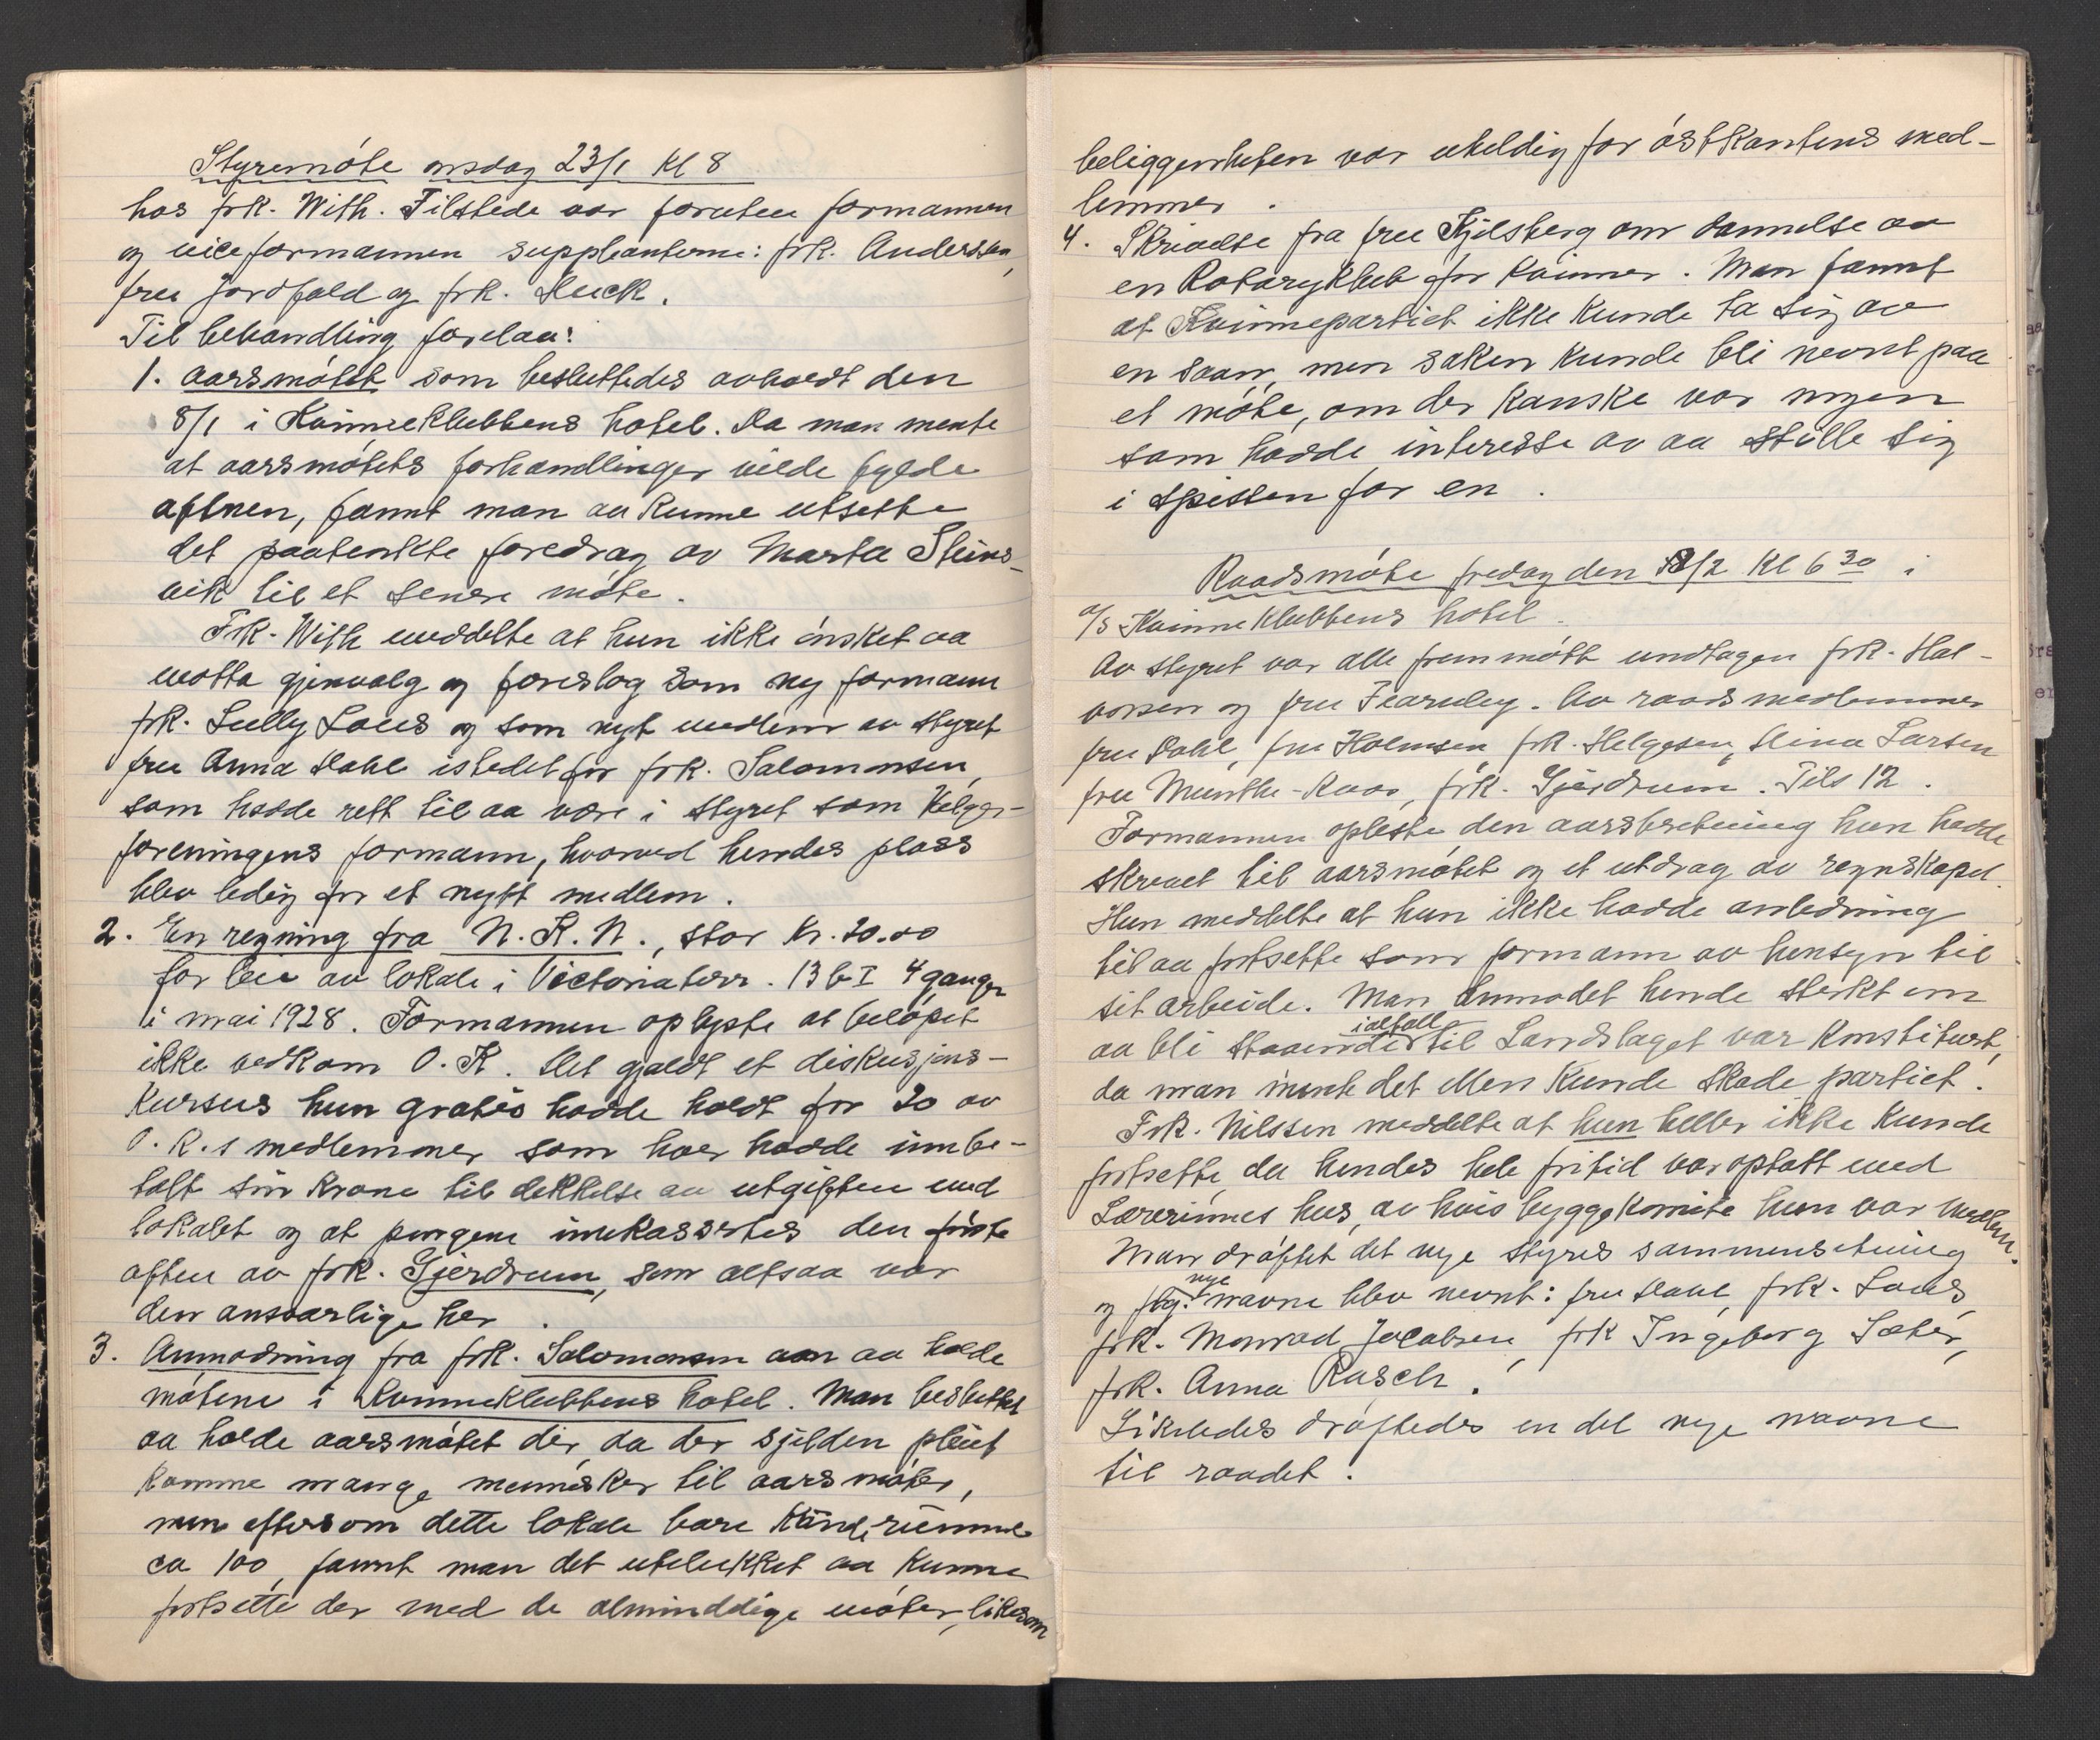 Styremöte onsdag 23/1 Kl 8
hos frk. With. Tilstede var foruten formannen
og viceformannen suppleanterne: frk. Andersen,
fru Jordfald og frk. Huck.
Til behandling forelaa:
1. aarsmötet som besluttedes avholdt den
8/1 i Kvinneklubbens hotel. Da man mente
at aarsmötets forhandlinger vilde fylde
aftnen, fannt man aa kunne utsette
det paatenkte foredrag av Marta Steins-
vik til et senere möte.
Frk. With meddelte at hun ikke önsket aa
motta gjenvalg og foreslog som ny formann
frk. Lully Lous og som nyt medlem av styret
fru Anna Dahl istedet for frk. Salomonsen,
som hadde rett til aa være i styret som Velger-
foreningens formann, hvorved hendes plass
blev ledig for et nytt medlem.
2. En regning fra N. K. N., stor Kr. 20.00
for leie av lokale i Victoriaterr. 13 b I 4 ganger
i mai 1928. Formannen oplyste at belöpet
ikke vedkom O. K. Det gjaldt et diskusjons-
kursus hun gratis hadde holdt for 20 av
O. K.s medlemmer som hver hadde innbe-
talt sin krone til dekkelse av utgiften med
lokalet og at pengene innkassertes den förste
aften av frk. Gjerdrum, som altsaa var
den ansvarlige her.
3. Anmodning fra frk. Salomonsen om aa holde
mötene i Kvinneklubbens hotel. Man besluttet
aa holde aarsmötet der, da der sjelden pleiet
komme mange mennesker til aarsmöter,
men eftersom dette lokale bare kunde rumme
ca 100, fannt man det utelukket aa kunne
fortsette der med de almindelige möter, likesom
beliggenheten var uheldig for östkantens med-
lemmer.
4. Skrivelse fra fru Kjelsberg om dannelse av
en Rotaryklub for kvinner. Man fannt
at Kvinnepartiet ikke kunde ta sig av
en saan, men saken kunde bli nevnt paa
et möte, om der kanske var nogen
som hadde interesse av aa stille sig
i spissen for en.
Raadsmöte fredag den 8/2 Kl 6 30 i
a/s Kvinneklubbens hotel.
Av styret var alle fremmött undtagen frk. Hal-
vorsen og fru Fearnley. Av raadsmedlemmer
fru Dahl, fru Holmsen, frk. Helgesen, Stina Larsen
fru Munthe-Kaas, frk. Gjerdrum. Tils 12.
Formannen opleste den aarsberetning hun hadde
skrevet til aarsmötet og et utdrag av regnskapet.
Hun meddelte at hun ikke hadde anledning
til aa fortsette som formann av hensyn til
sit arbeide. Man anmodet hende sterkt om
aa bli staaende ialfall til Landslaget var konstituert,
da man mente det ellers kunde skade partiet.
Frk. Nilssen meddelte at hun heller ikke kunde
fortsette da hendes hele fritid var optatt med
Lærerinnes hus, av hvis byggekomite hun var medlem.
Man dröftet det nye styres sammensetning
og flg. nye navne blev nevnt: fru Dahl, frk. Lous,
frk. Monrad Jacobsen, frk Ingeborg Sæter,
frk. Anna Rasch.
Likeledes dröftedes en del nye navne
til raadet.